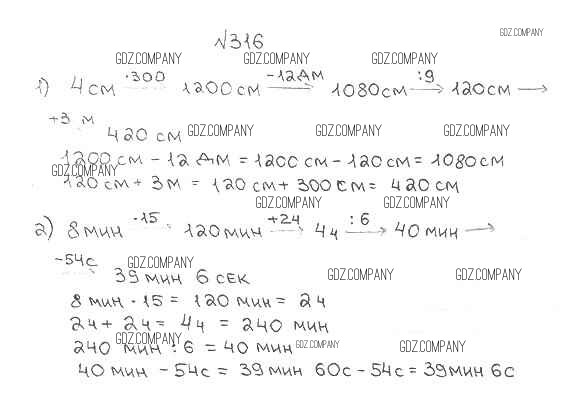 №316
GDZ.COMPANY
GDZ.COMPANY GDZ.COMPANY GDZ.COMPANY
1) 4 см ·300 → 1200 см -12дм → 1080 см :9 → 120 см →
+3 м 420 см GDZ.COMPANY GDZ.COMPANY GDZ.COMPANY
1200 см - 12 дм = 1200 см - 120 см = 1080 см
GDZ.COMPANY
120 см + 3 м = 120 см + 300 см = 420 см
GDZ.COMPANY GDZ.COMPANY
2) 8 мин ·15 → 120 мин +2ч → 4ч :6 → 40 мин →
-54с GDZ.COMPANY
39 мин 6 сек GDZ.COMPANY GDZ.COMPANY
8 мин · 15 = 120 мин = 2ч
2ч + 2ч = 4ч = 240 мин
GDZ.COMPANY GDZ.COMPANY GDZ.COMPANY
240 мин : 6 = 40 мин
40 мин - 54с = 39 мин 60с - 54с = 39 мин 6с